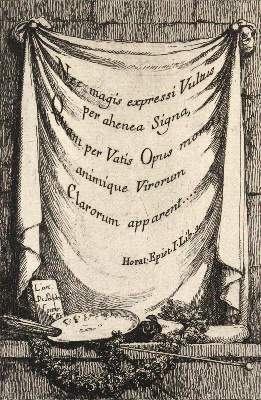 Nec magis expressi Vultus
per ahenea Signa,
Quam per Vatis Opus mores
animique Virorum
Clarorum apparent....
Horat: Epist: I. Lib: